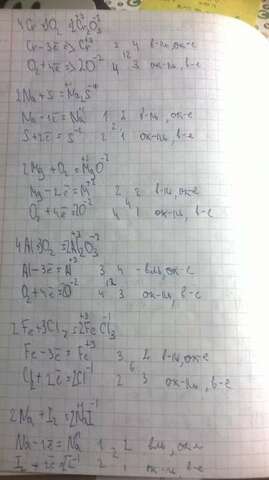 4Cr+3O₂=2Cr₂⁺³O₃⁻²
Cr-3ē=>Cr⁺³ 3 4 в-ль, ок-е
O₂+4ē=>2O⁻² 12 4 3 ок-ль, в-е
2Na+S=Na₂⁺¹S⁻²
Na-1ē=Na⁺¹ 1 2 в-ль, ок-е
S+2ē=S⁻² 2 2 1 ок-ль, в-е
2Mg+O₂=2Mg⁺²O⁻²
Mg-2ē=Mg⁺² 2 2 в-ль, ок-е
O₂+4ē=2O⁻² 4 4 1 ок-ль, в-е
4Al+3O₂=2Al₂⁺³O₃⁻²
Al-3ē=Al⁺³ 3 4 -вль, ок-е
O₂+4ē=2O⁻² 12 4 3 ок-ль, в-е
2Fe+3Cl₂=2Fe⁺³Cl₃⁻¹
Fe-3ē=Fe⁺³ 3 2 в-ль, ок-е
Cl₂+2ē=2Cl⁻¹ 6 2 3 ок-ль, в-е
2Na+I₂=2Na⁺¹I⁻¹
Na-1ē=Na⁺¹ 1 2 вль,
I₂+2ē=2I⁻¹ 2 2 1 ок-ль, в-е